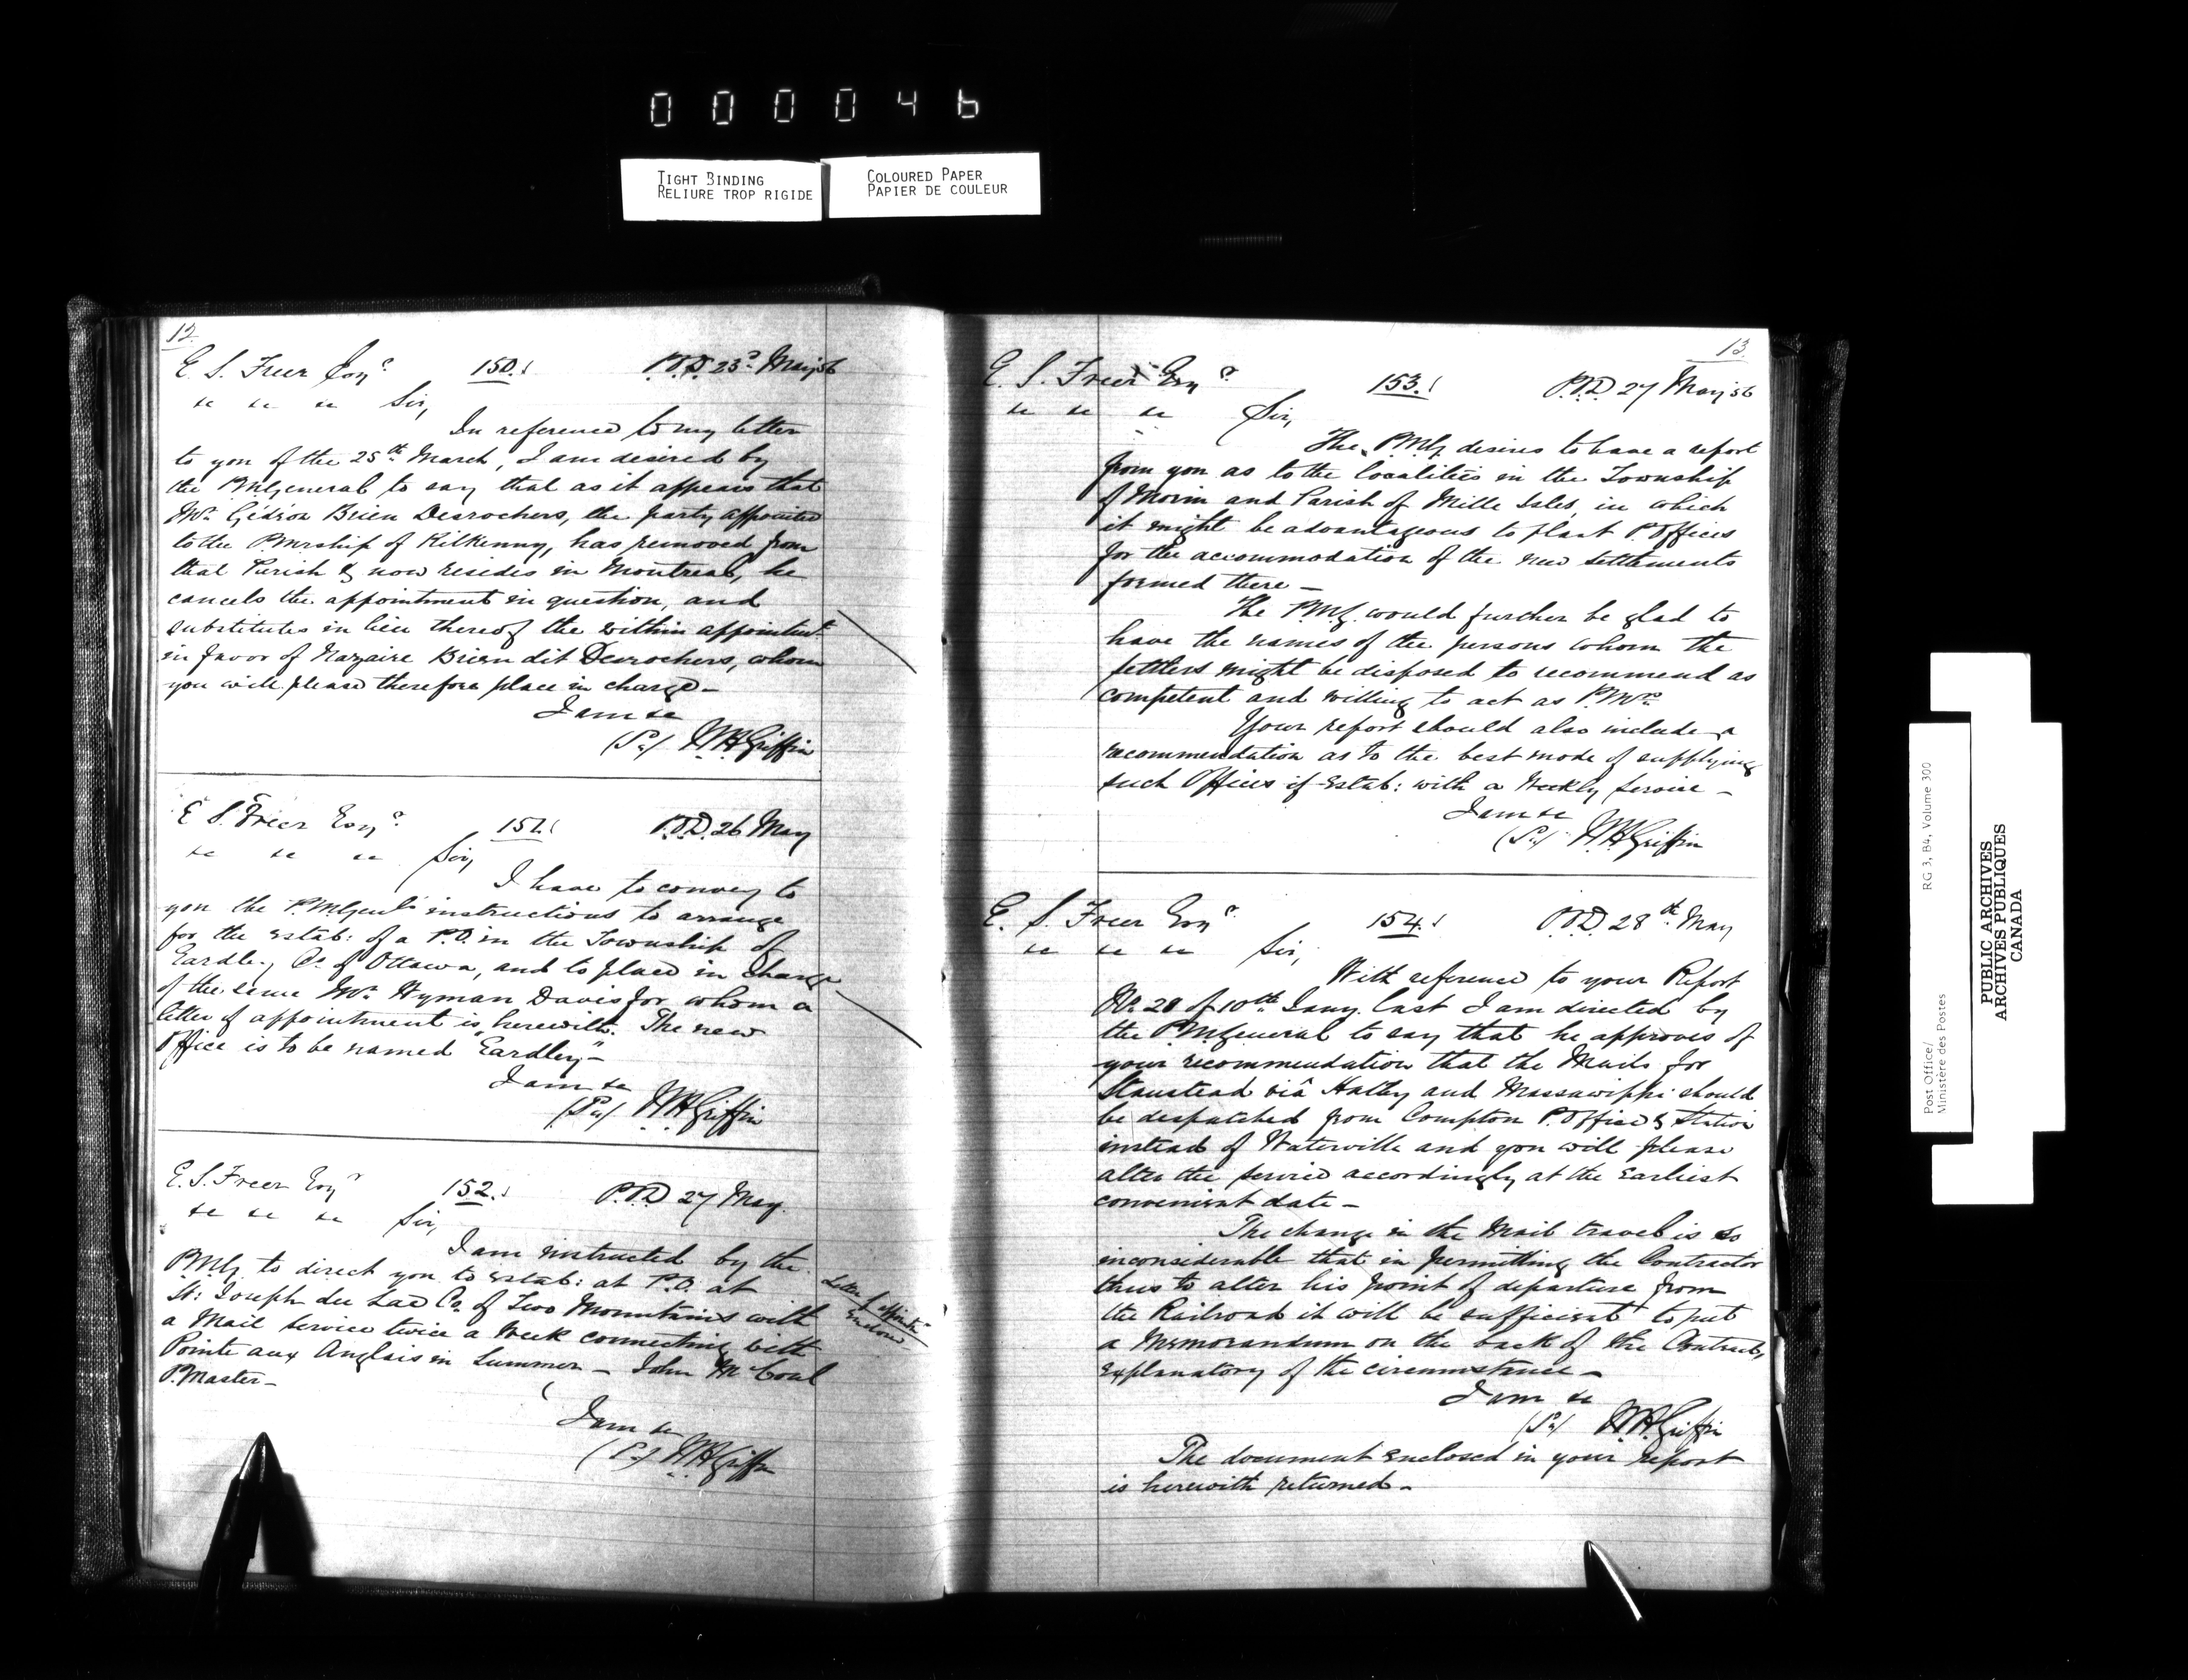 000046
TIGHT BINDING
RELIURE TROP RIGIDE
COLOURED PAPER
PAPIER DE COULEUR
12.
E. S. Freer Esqr. 150. P.O.D. 23d May 56
&c &c &c Sir,
In reference to my letter
to you of the 25th March, I am desired by
the PMGeneral to say that as it appears that
Mr. Gédéon Brien Desrochers, the party appointed
to the PMrship of Kilkenny, has removed from
that Parish & now resides in Montreal, he
cancels the appointment in question, and
substitutes in lieu thereof the within appointmt.
in favor of Nazaire Brien dit Desrochers, whom
you will please therefore place in charge—
I am &c
(Sd) W.H. Griffin
E. S. Freer Esqr. 151. P.O.D. 26 May
&c &c &c Sir,
I have to convey to
you the P.MGenl's instructions to arrange
for the Estab: of a P.O. in the Township of
Eardley, Co. of Ottawa, and to place in charge
of the same Mr. Hyman Davis for whom a
letter of appointment is herewith. The new
Office is to be named "Eardley"—
I am &c
(Sd) W.H. Griffin
E. S. Freer Esqr 152. P.O.D 27 May.
&c &c &c Sir,
I am instructed by the
P.M.G. to direct you to Estab: at P.O. at
St: Joseph du Lac Co. of Two Mountains with
a Mail Service twice a Week connecting with
Pointe aux Anglais in Summer — John McCoul
P.Master—
Letter of appointt.
Enclosed
I am &c
(Sd) W.H. Griffin
13.
E. S. Freer Esqr 153. P.O.D 27 May 56
&c &c &c Sir,
The P.M.G. desires to have a report
from you as to the localities in the Township
of Morin and Parish of Mille Isles, in which
it might be advantageous to plant P. Offices
for the accommodation of the new settlements
formed there —
The P.M.G. would further be glad to
have the names of the persons whom the
settlers might be disposed to recommend as
competent and willing to act as P.Mrs.
Your report should also include a
recommendation as to the best mode of supplying
such Offices if Estab: with a Weekly Service —
I am &c
(Sd) W.H. Griffin
E. S. Freer Esqr. 154. P.O.D. 28th May
&c &c &c Sir,
With reference to your Report
No. 20 of 10th Jany. last I am directed by
the P.MGeneral to say that he approves of
your recommendation that the Mails for
Stanstead viâ Hatley and Massawippi should
be despatched from Compton P. Office & Station
instead of Waterville and you will please
alter the service accordingly at the Earliest
convenient date —
The change in the Mail travel is so
inconsiderable that in permitting the Contractor
thus to alter his point of departure from
the Railroad it will be sufficient to put
a Memorandum on the back of the Contract,
Explanatory of the circumstance —
I am &c
(Sd) W.H. Griffin
The document Enclosed in your report
is herewith returned.
Post Office/
Ministère des Postes
RG 3, B4, Volume 300
PUBLIC ARCHIVES
ARCHIVES PUBLIQUES
CANADA